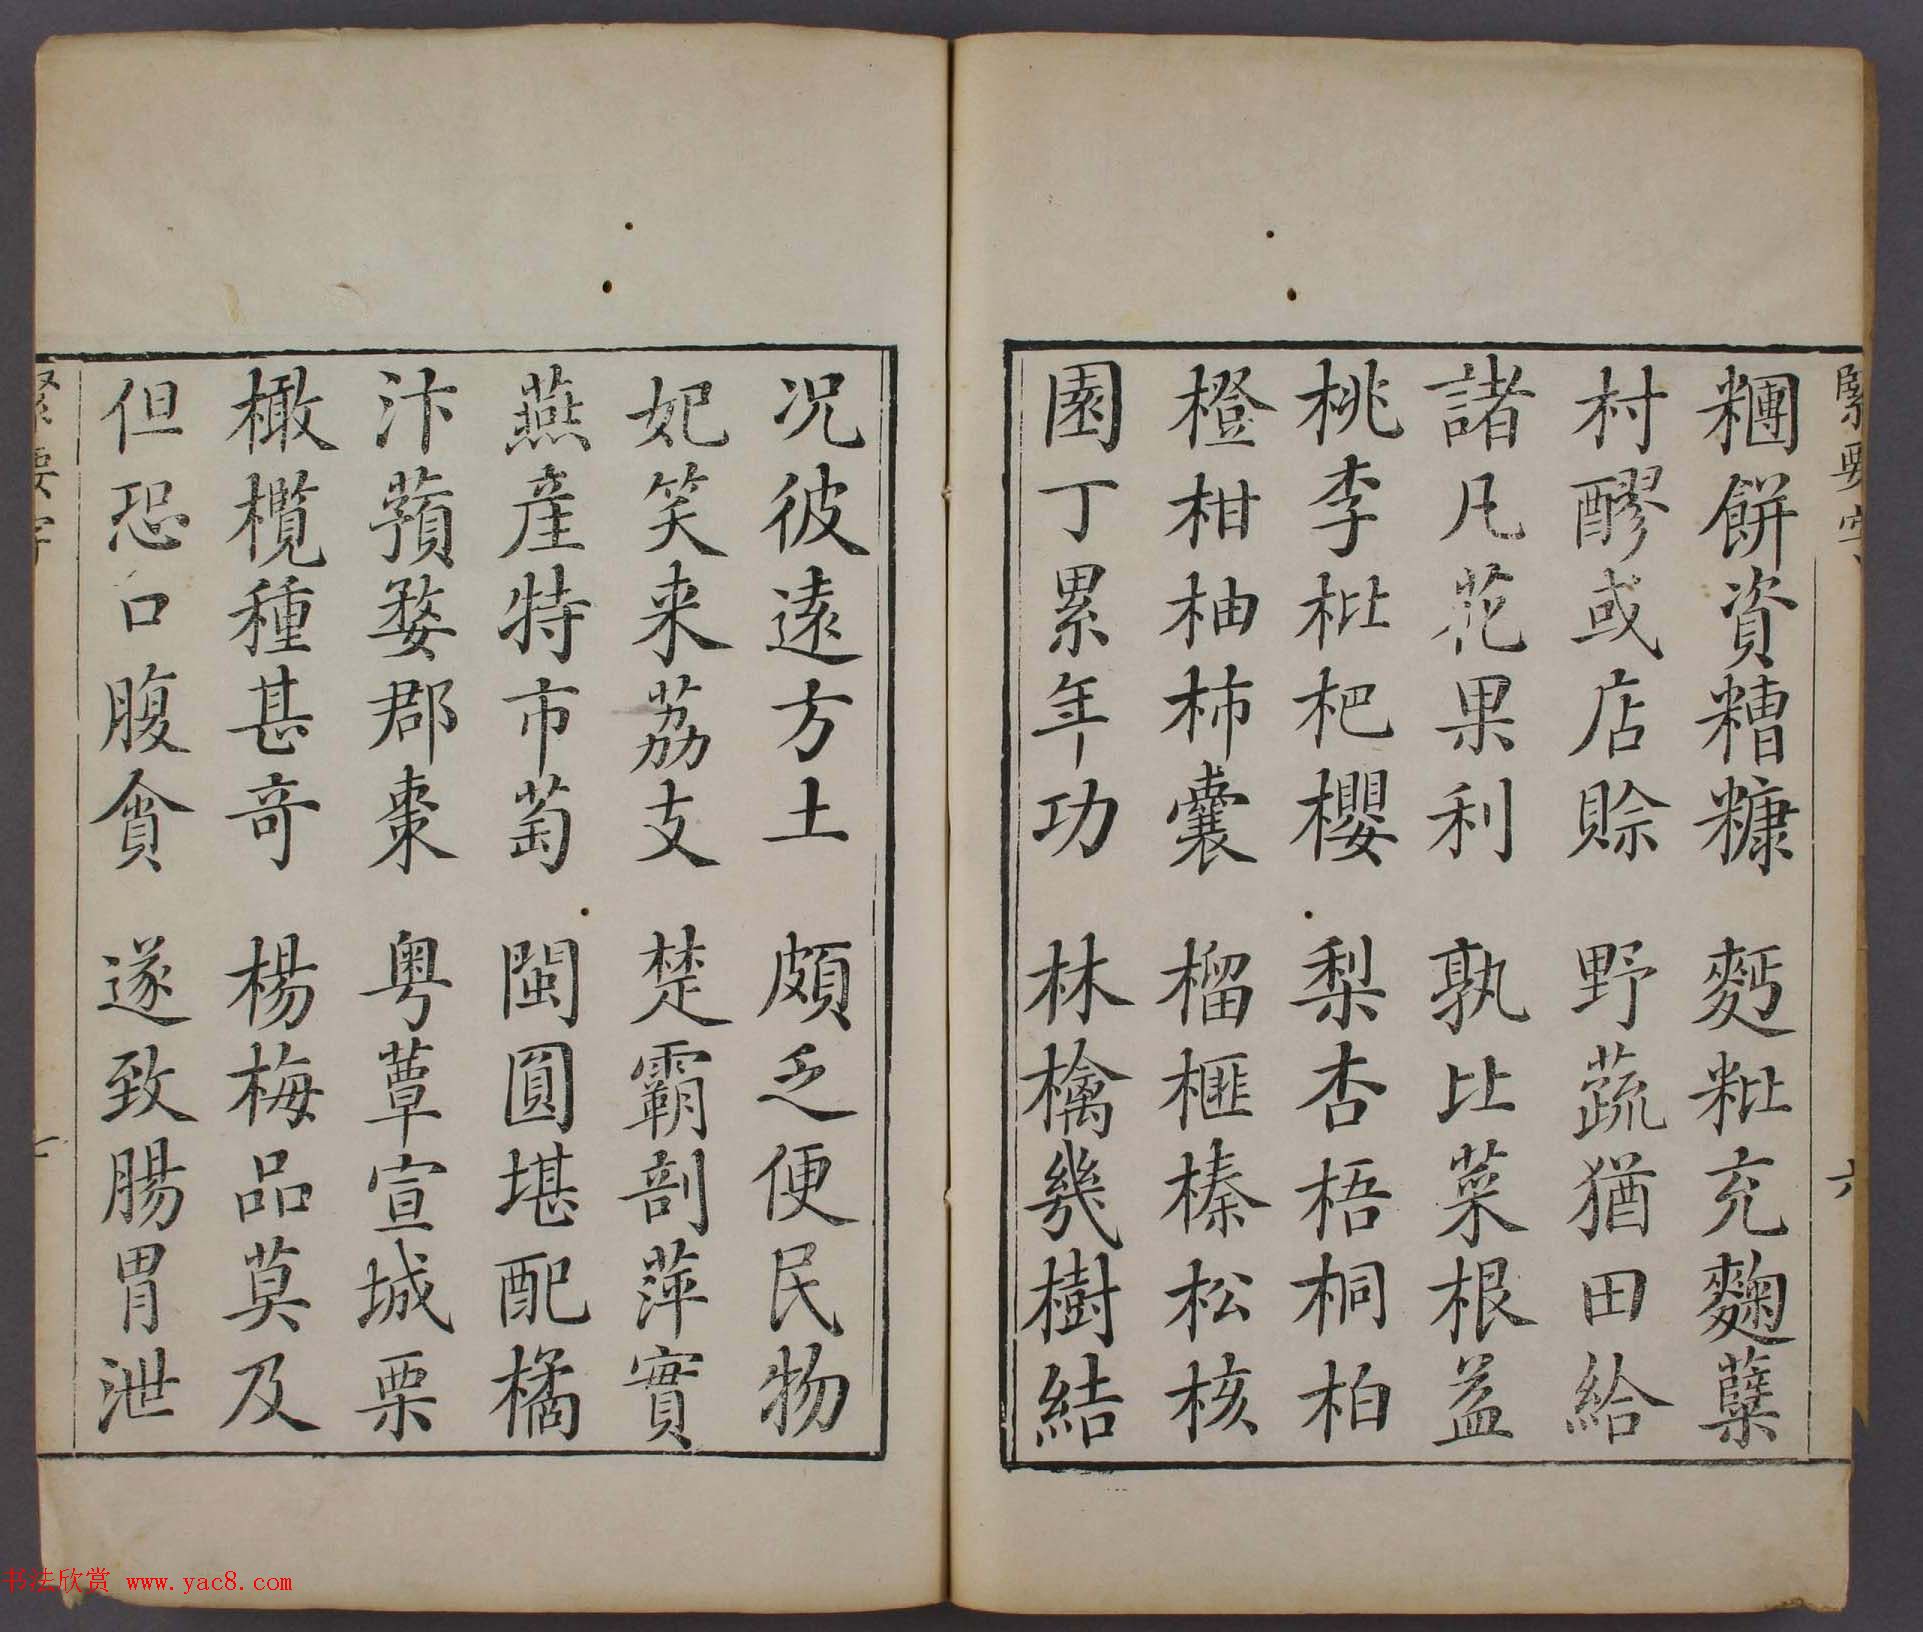 糰餅資糟糠 麫粃充麴糵
村醪或店賒 野蔬猶田給
諸凡花果利 孰比菜根益
桃李枇杷櫻 梨杏梧桐柏
橙柑柚柿囊 榴榧榛松核
園丁累年功 林檎幾樹結
况彼遠方土 頗乏便民物
妃笑来荔支 楚霸剖萍實
燕産特市萄 閩圓堪配橘
汴蘋婺郡棗 粤蕈宣城栗
橄欖種甚奇 楊梅品莫及
但恐口腹貪 遂致腸胃泄
緊要字
六
书法欣赏 www.yac8.com